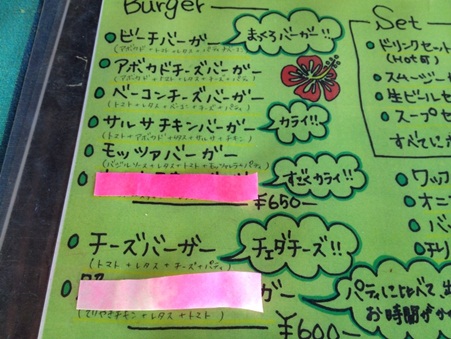 Burger
ビーチバーガー
まぐろバーガー!!
アボカドチーズバーガー
ベーコンチーズバーガー
(トマト+レタス+ベーコン+チーズ+パティ)
サルサチキンバーガー
(トマト+アボカド+レタス+サルサ+チキン)
カライ!!
モッツァバーガー
(バジルソース+レタス+トマト+モッツァレラ+パティ)
すごくカライ!!
¥650-
チーズバーガー
(トマト+レタス+チーズ+パティ)
チェダチーズ!!
ガー
(てりやきチキン+レタス+トマト)
¥600-
Set
ドリンクセット
(Hot可)
スムージー
生ビールセ
スープセ
すべてに
ワック
オニ
バッ
チリ
パティによって、出
お時間がか